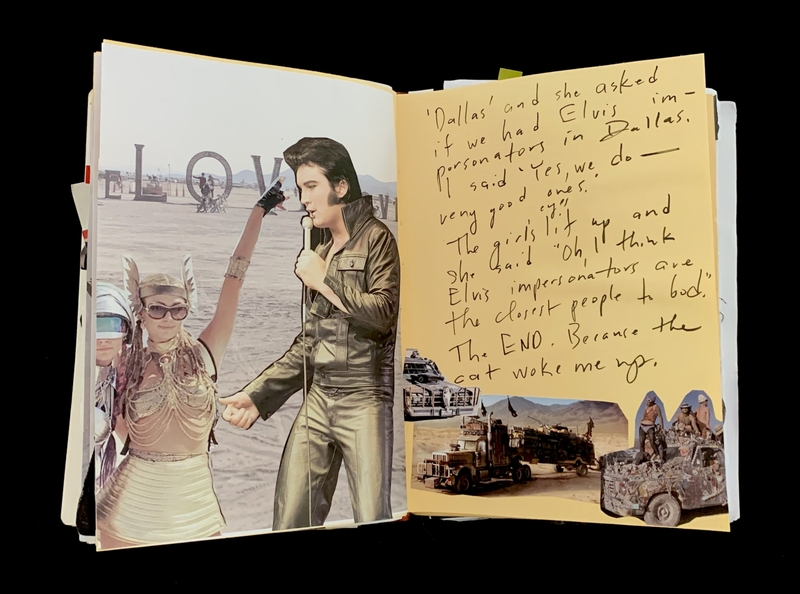 ELOV
'Dallas' and she asked
if we had Elvis im-
personators in Dallas.
I said "Yes, we do —
very good ones."
The girl's "eyes" lit up and
she said "Oh, I think
Elvis impersonators are
the closest people to God."
The END. Because the
cat woke me up.